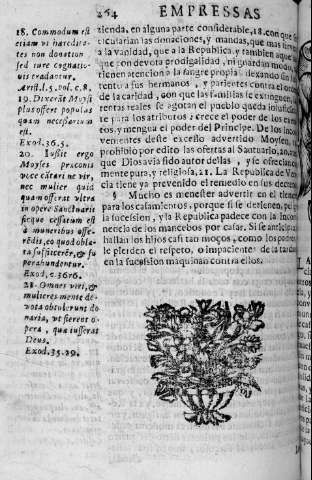 264 EMPRESSAS
18. Commodum est
etiam vt haeredita-
tes non donatione
sed iure cognatio-
nis tradantur.
Arist. l. 5. pol. c. 8.
19. Dixerũt Moysi
plus offert populus
quam necessarium
est.
Exod. 36. 5.
20. Iussit ergo
Moyses praeconis
voce cãtari ne vir,
nec mulier quid
quã offerat vltra
in opere Sanctuarij
sicque cessatum est
à muneribus offe-
rẽdis, eo quod obla-
ta sufficerẽt, & su-
perabundarent.
Exod. c. 36. 6.
21. Omnes viri, &
mulieres mente de-
vota obtulerunt do-
naria, vt fierent o-
pera, quae iusserat
Deus.
Exod. 35. 29.
zienda, en alguna parte considerable, 18. con que se
las donaciones, y mandas, que mas sirven
a la vanidad, que a la Republica, y tambien aque
que con devota prodigalidad, ni guardan modo, ni
tienen atencion a la sangre propia, dexando sin sus-
tento a sus hermanos, y parientes contra el orden
de la caridad, con que las familias se extinguen, las
rentas reales se agotan el pueblo queda insuficien-
te para los atributos, crece el poder de los exem-
tos, y mengua el poder del Principe. De los incon-
venientes deste excesso advertido Moysen, 19.
prohibio por edito las ofertas al Santuario, 20. aun-
que Dios avia sido autor dellas, y se ofrecian con
mente pura, y religiosa, 21. La Republica de Vene-
cia tiene ya prevenido el remedio en sus decretos.
§ Mucho es menester advertir en el tiempo
para los casamientos, porque si se detienen, peligra
la sucession, y la Republica padece con la incon-
tinencia de los mancebos por casar. Si se anticipan, se
hallan los hijos casi tan moços, como los padres, y
le pierden el respeto, o impacientes de la tardança
en la sucession maquinan contra ellos.